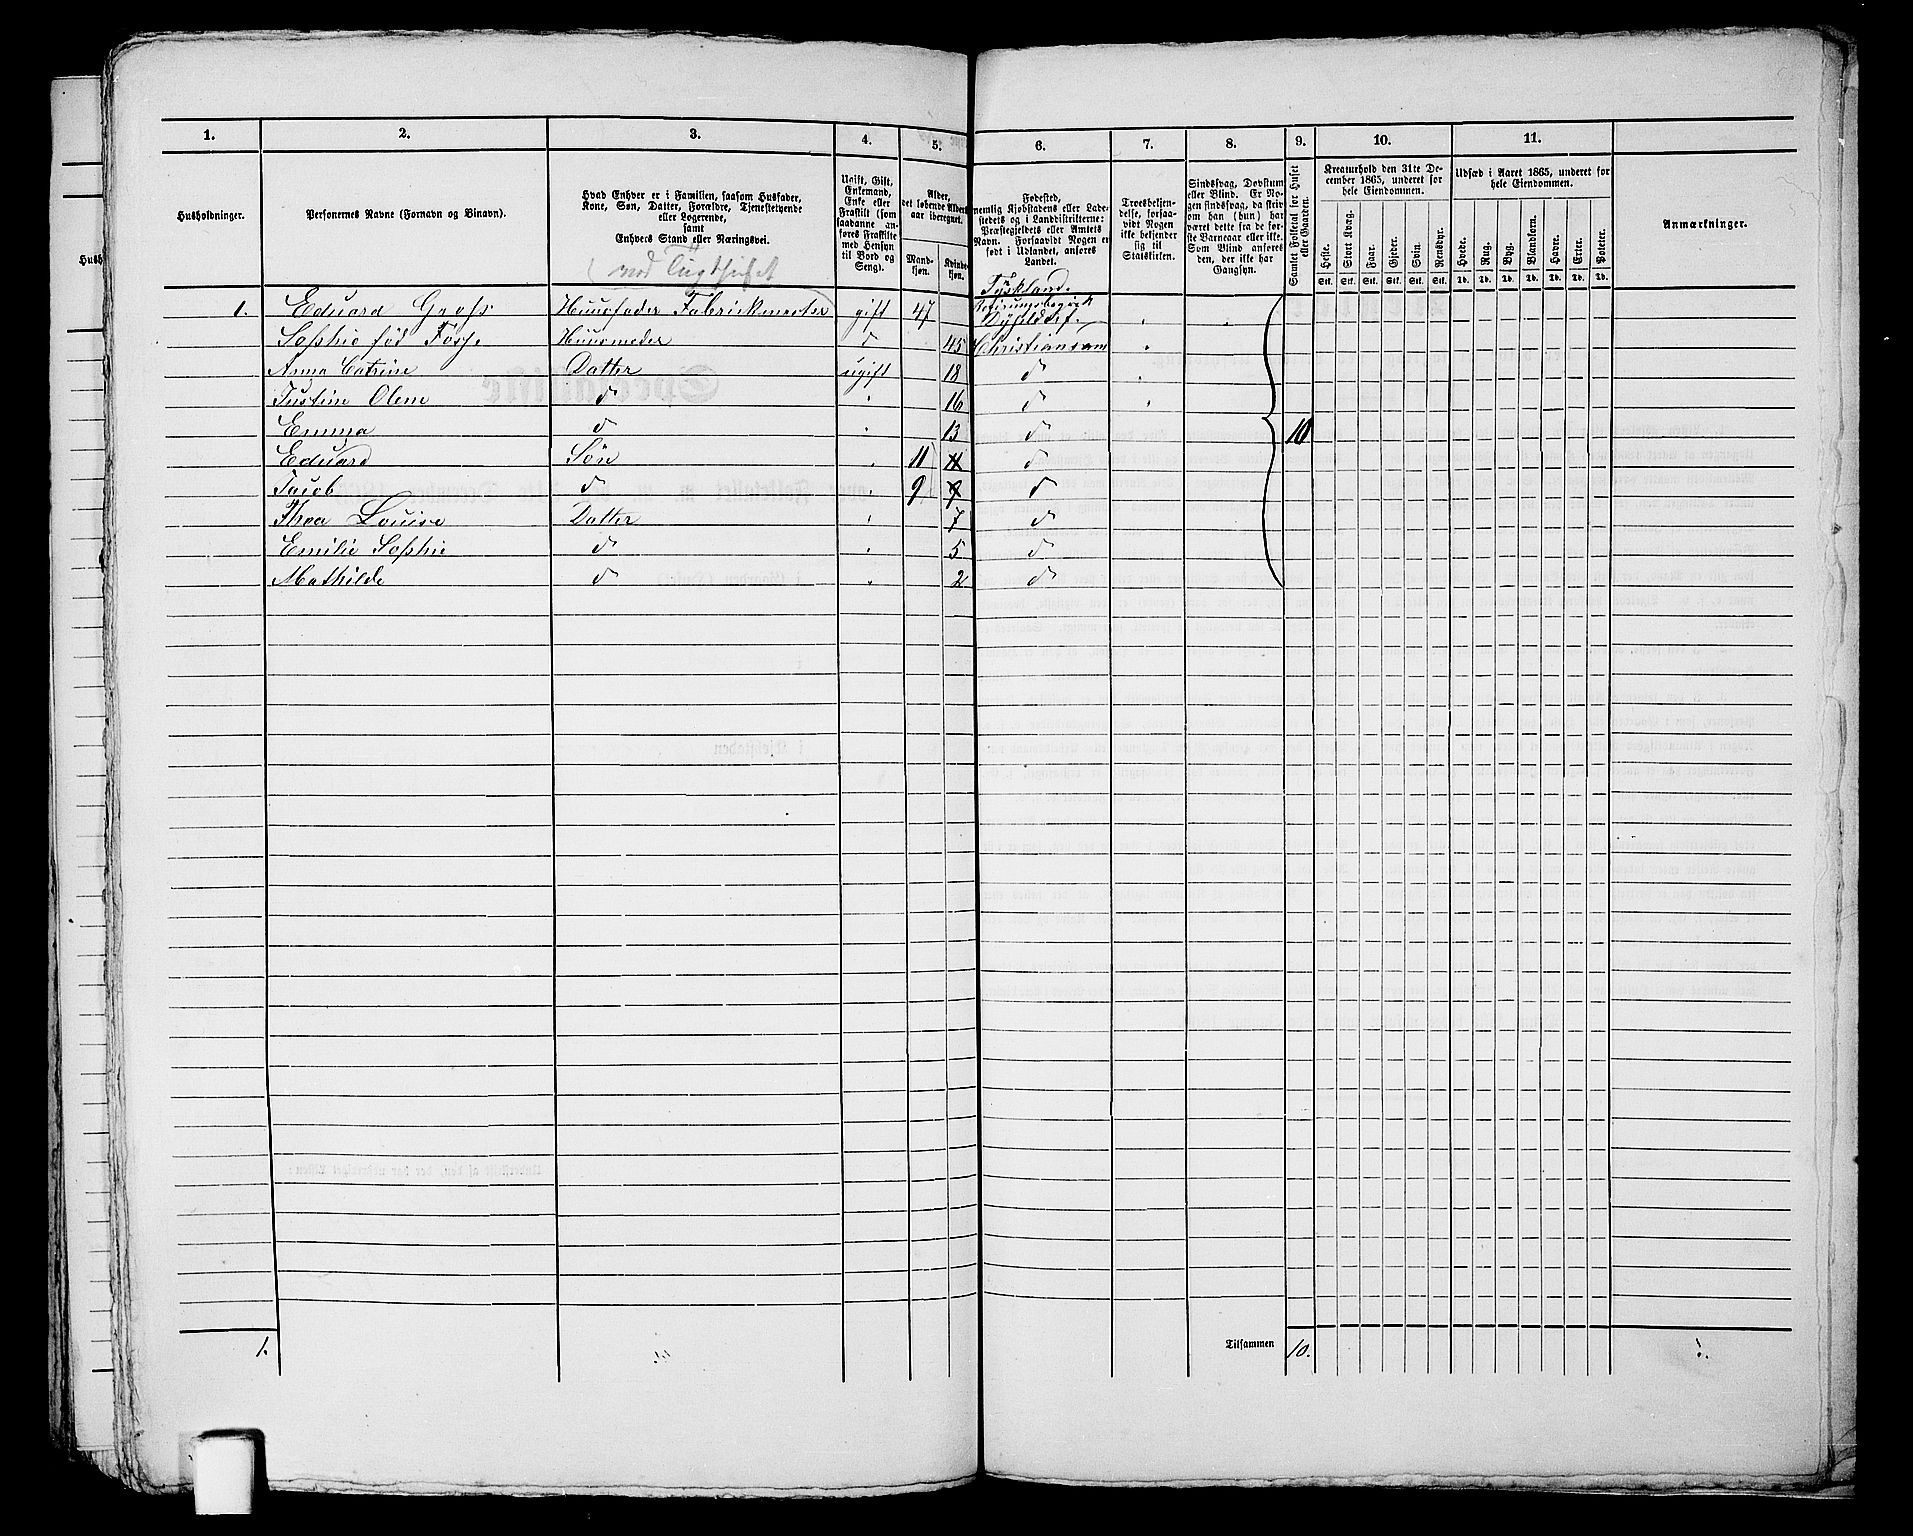 1. 2. 3. 4. 5. 6. 7. 8. 9. 10. 11.
Husholdninger.
Personernes Navne (Fornavn og Binavn).
Hvad Enhver er i Familien, saasom Husfader,
Kone, Søn, Datter, Forældre, Tjenestetyende
eller Logerende,
samt
Enhvers Stand eller Næringsvei.
Ugift, Gift,
Enkemand,
Enke eller
Fraskilt (som
saadanne an-
føres Fraskilte
med Hensyn
til Bord og
Seng).
Alder,
det løbende Alders-
aar iberegnet.
Mand-
kjøn.
Kvinde-
kjøn.
Fødested,
nemlig Kjøbstadens eller Lade-
stedets og i Landdistrikterne:
Præstegjeldets eller Amtets
Navn. Forsaavidt Nogen er
født i Udlandet, anføres
Landet.
Troesbekjen-
delse, forsaa-
vidt Nogen
ikke bekjender
sig til
Statskirken.
Sindssvag, Døvstum
eller Blind. Er No-
gen sindssvag, da skri-
ves om han (hun) har
været dette fra de før-
ste Barneaar eller ikke.
Som Blind anføres
den, der ikke har
Gangsyn.
Samlet Folketal for Huset
eller Gaarden.
Kreaturhold den 31te De-
cember 1865, underet for
hele Eiendommen.
Heste. Stort Kvæg. Faar. Gjeder. Svin. Rensdyr.
Stk. Stk. Stk. Stk. Stk. Stk.
Udsæd i Aaret 1865, underet for
hele Eiendommen.
Hvede. Rug. Byg. Blandkorn. Havre. Erter. Poteter.
Td. Td. Td. Td. Td. Td. Td.
Anmærkninger.
ved Tugthuset
Tyskland.
1. Eduard Gross Huusfader Fabrickmester gift 47
Sophie fød Huusmoder d 45 Christiansand
Anna Catrine Datter ugift 18 d
Justine Olene d " 16 d
Emma d " 13 d 10
Eduard Søn " 11 11 d
Jacob d " 9 9 d
Thea Louise Datter " 7 d
Emilie Sophie d " 5 d
Mathilde d " 2 d
1. Tilsammen 10.